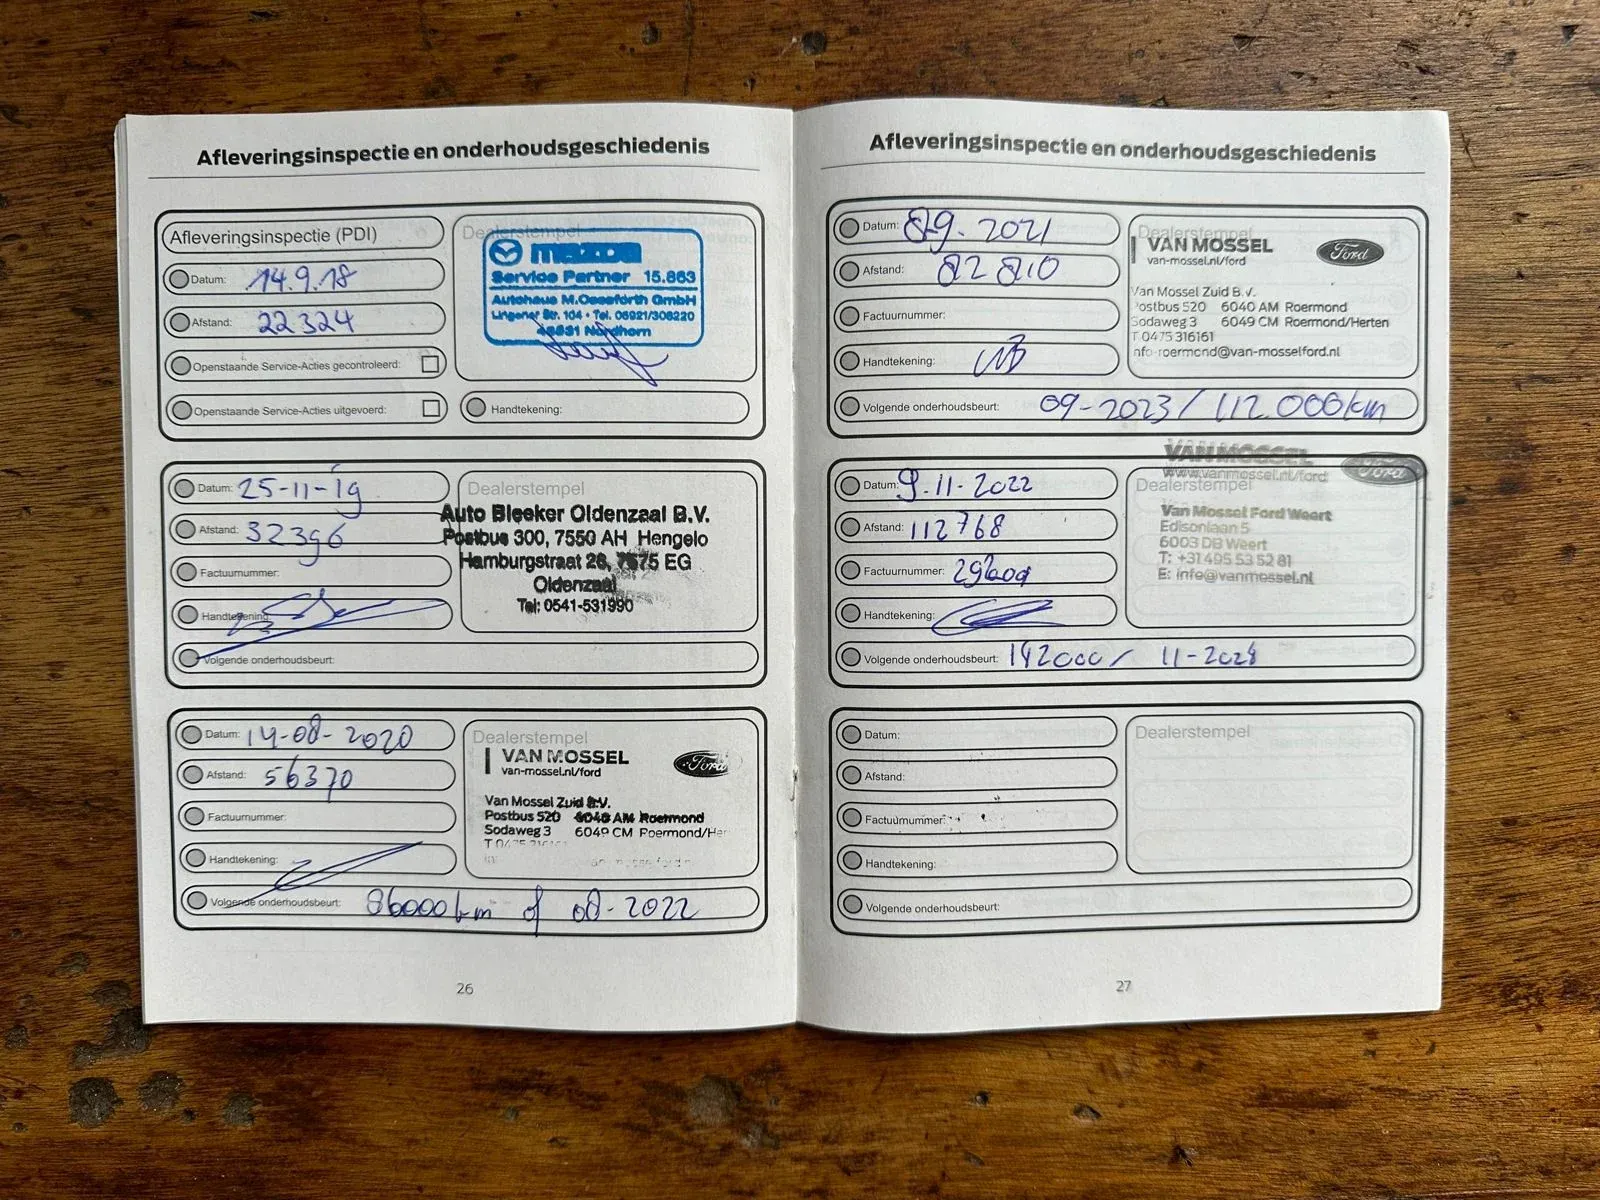 Afleveringsinspectie en onderhoudsgeschiedenis
Afleveringsinspectie (PDI)
Datum: 14.9.18
Afstand: 22 324
Openstaande Service-Acties gecontroleerd:
Openstaande Service-Acties uitgevoerd:
Dealerstempel
mazda
Service Partner 15.863
Autohaus M.Oeseforth GmbH
Lingener Str. 104 • Tel. 05921/308220
Nordhorn
Handtekening:
Datum: 25-11-19
Afstand: 32396
Factuurnummer:
Handtekening:
Volgende onderhoudsbeurt:
Dealerstempel
Auto Bleeker Oldenzaal B.V.
Postbus 300, 7550 AH Hengelo
Hamburgstraat 28, 7575 EG
Oldenzaal
Tel: 0541-531990
Datum: 14-08-2020
Afstand: 56370
Factuurnummer:
Handtekening:
Volgende onderhoudsbeurt: 86000 km of 08-2022
Dealerstempel
VAN MOSSEL
van-mossel.nl/ford
Ford
Van Mossel Zuid B.V.
Postbus 520 6040 AM Roermond
Sodaweg 3 6049 CM Roermond/Her
26
Afleveringsinspectie en onderhoudsgeschiedenis
Datum: 8-9-2021
Afstand: 82 810
Factuurnummer:
Handtekening:
Volgende onderhoudsbeurt: 09-2023 / 112.000km
Dealerstempel
VAN MOSSEL
van-mossel.nl/ford
Ford
Van Mossel Zuid B.V.
Postbus 520 6040 AM Roermond
Sodaweg 3 6049 CM Roermond/Herten
T 0475 316161
info-roermond@van-mosselford.nl
Datum: 9-11-2022
Afstand: 112768
Factuurnummer:
Handtekening:
Volgende onderhoudsbeurt: 142000 / 11-2024
VAN MOSSEL
www.vanmossel.nl/ford
Ford
Dealerstempel
Van Mossel Ford Weert
Edisonlaan 5
6003 DB Weert
T: +31 495 53 52 81
E: info@vanmossel.nl
Datum:
Afstand:
Factuurnummer:
Handtekening:
Volgende onderhoudsbeurt:
Dealerstempel
27